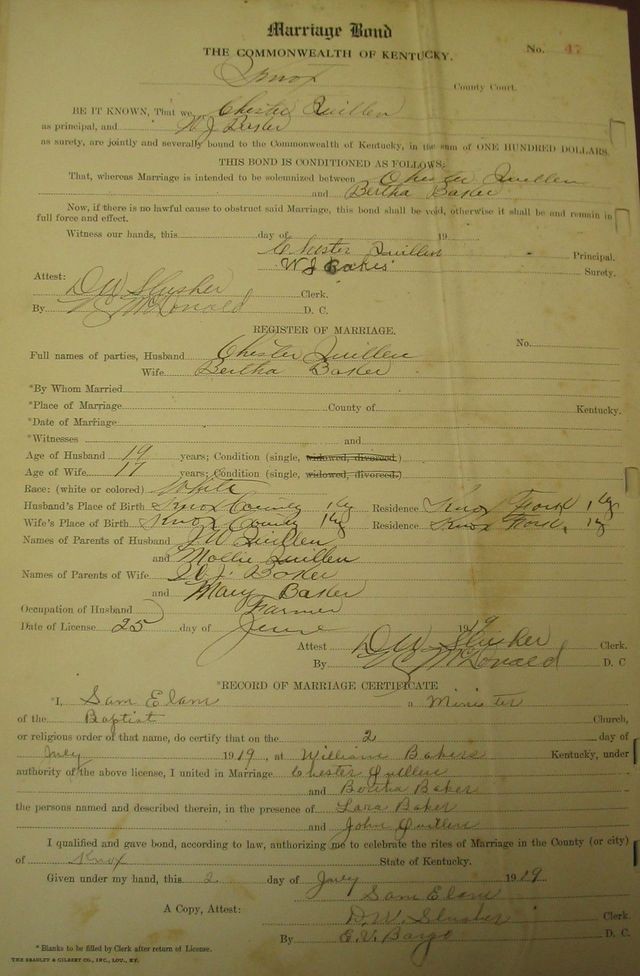 Marriage Bond
THE COMMONWEALTH OF KENTUCKY.
No. 47
Knox County Court.
BE IT KNOWN, That we, Chester Quillen
as principal, and W J Baker
as surety, are jointly and severally bound to the Commonwealth of Kentucky, in the sum of ONE HUNDRED DOLLARS.
THIS BOND IS CONDITIONED AS FOLLOWS:
That, whereas Marriage is intended to be solemnized between Chester Quillen
and Bertha Baker
Now, if there is no lawful cause to obstruct said Marriage, this bond shall be void, otherwise it shall be and remain in
full force and effect.
Witness our hands, this day of 19
Chester Quillen Principal.
W J Surety.
Attest:
D W Slusher Clerk.
By McDonald D. C.
REGISTER OF MARRIAGE.
No.
Full names of parties, Husband Chester Quillen
Wife Bertha Baker
*By Whom Married
*Place of Marriage County of Kentucky.
*Date of Marriage
*Witnesses and
Age of Husband 19 years; Condition (single, widowed, divorced.)
Age of Wife 17 years; Condition (single, widowed, divorced.)
Race: (white or colored) White
Husband's Place of Birth Knox County, Ky Residence Knox Fork, Ky
Wife's Place of Birth Knox County Ky Residence Knox Fork, Ky
Names of Parents of Husband J W Quillen
and Mollie Quillen
Names of Parents of Wife W. J. Baker
and Mary Baker
Occupation of Husband Farmer
Date of License 25 day of June 1919
Attest D W Slusher Clerk.
By McDonald D. C
*RECORD OF MARRIAGE CERTIFICATE
*I, Sam Elam a Minister
of the Baptist Church,
or religious order of that name, do certify that on the 2 day of
July 1919, at William Bakers Kentucky, under
authority of the above license, I united in Marriage Chester Quillen
and Bertha Baker
the persons named and described therein, in the presence of Lara Baker
and John Quillen
I qualified and gave bond, according to law, authorizing me to celebrate the rites of Marriage in the County (or city)
of Knox State of Kentucky.
Given under my hand, this 2 day of July 1919.
Sam Elam
A Copy, Attest: D. W. Slusher Clerk.
By E. V. Bargo D. C.
* Blanks to be filled by Clerk after return of License.
THE BRADLEY & GILBERT CO., INC., LOU., KY.